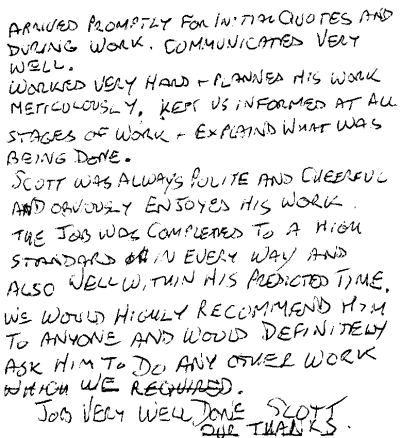 ARRIVED PROMPTLY FOR INITIAL QUOTES AND
DURING WORK. COMMUNICATED VERY
WELL.
WORKED VERY HARD + PLANNED HIS WORK
METICULOUSLY, KEPT US INFORMED AT ALL
STAGES OF WORK + EXPLAIND WHAT WAS
BEING DONE.
SCOTT WAS ALWAYS POLITE AND CHEERFUL
AND OBVIOUSLY ENJOYED HIS WORK.
THE JOB WAS COMPLETED TO A HIGH
STANDARD IN EVERY WAY AND
ALSO WELL WITHIN HIS PREDICTED TIME.
WE WOULD HIGHLY RECOMMEND HIM
TO ANYONE AND WOULD DEFINITELY
ASK HIM TO DO ANY OTHER WORK
WHICH WE REQUIRED.
JOB VERY WELL DONE SCOTT
OUR THANKS.